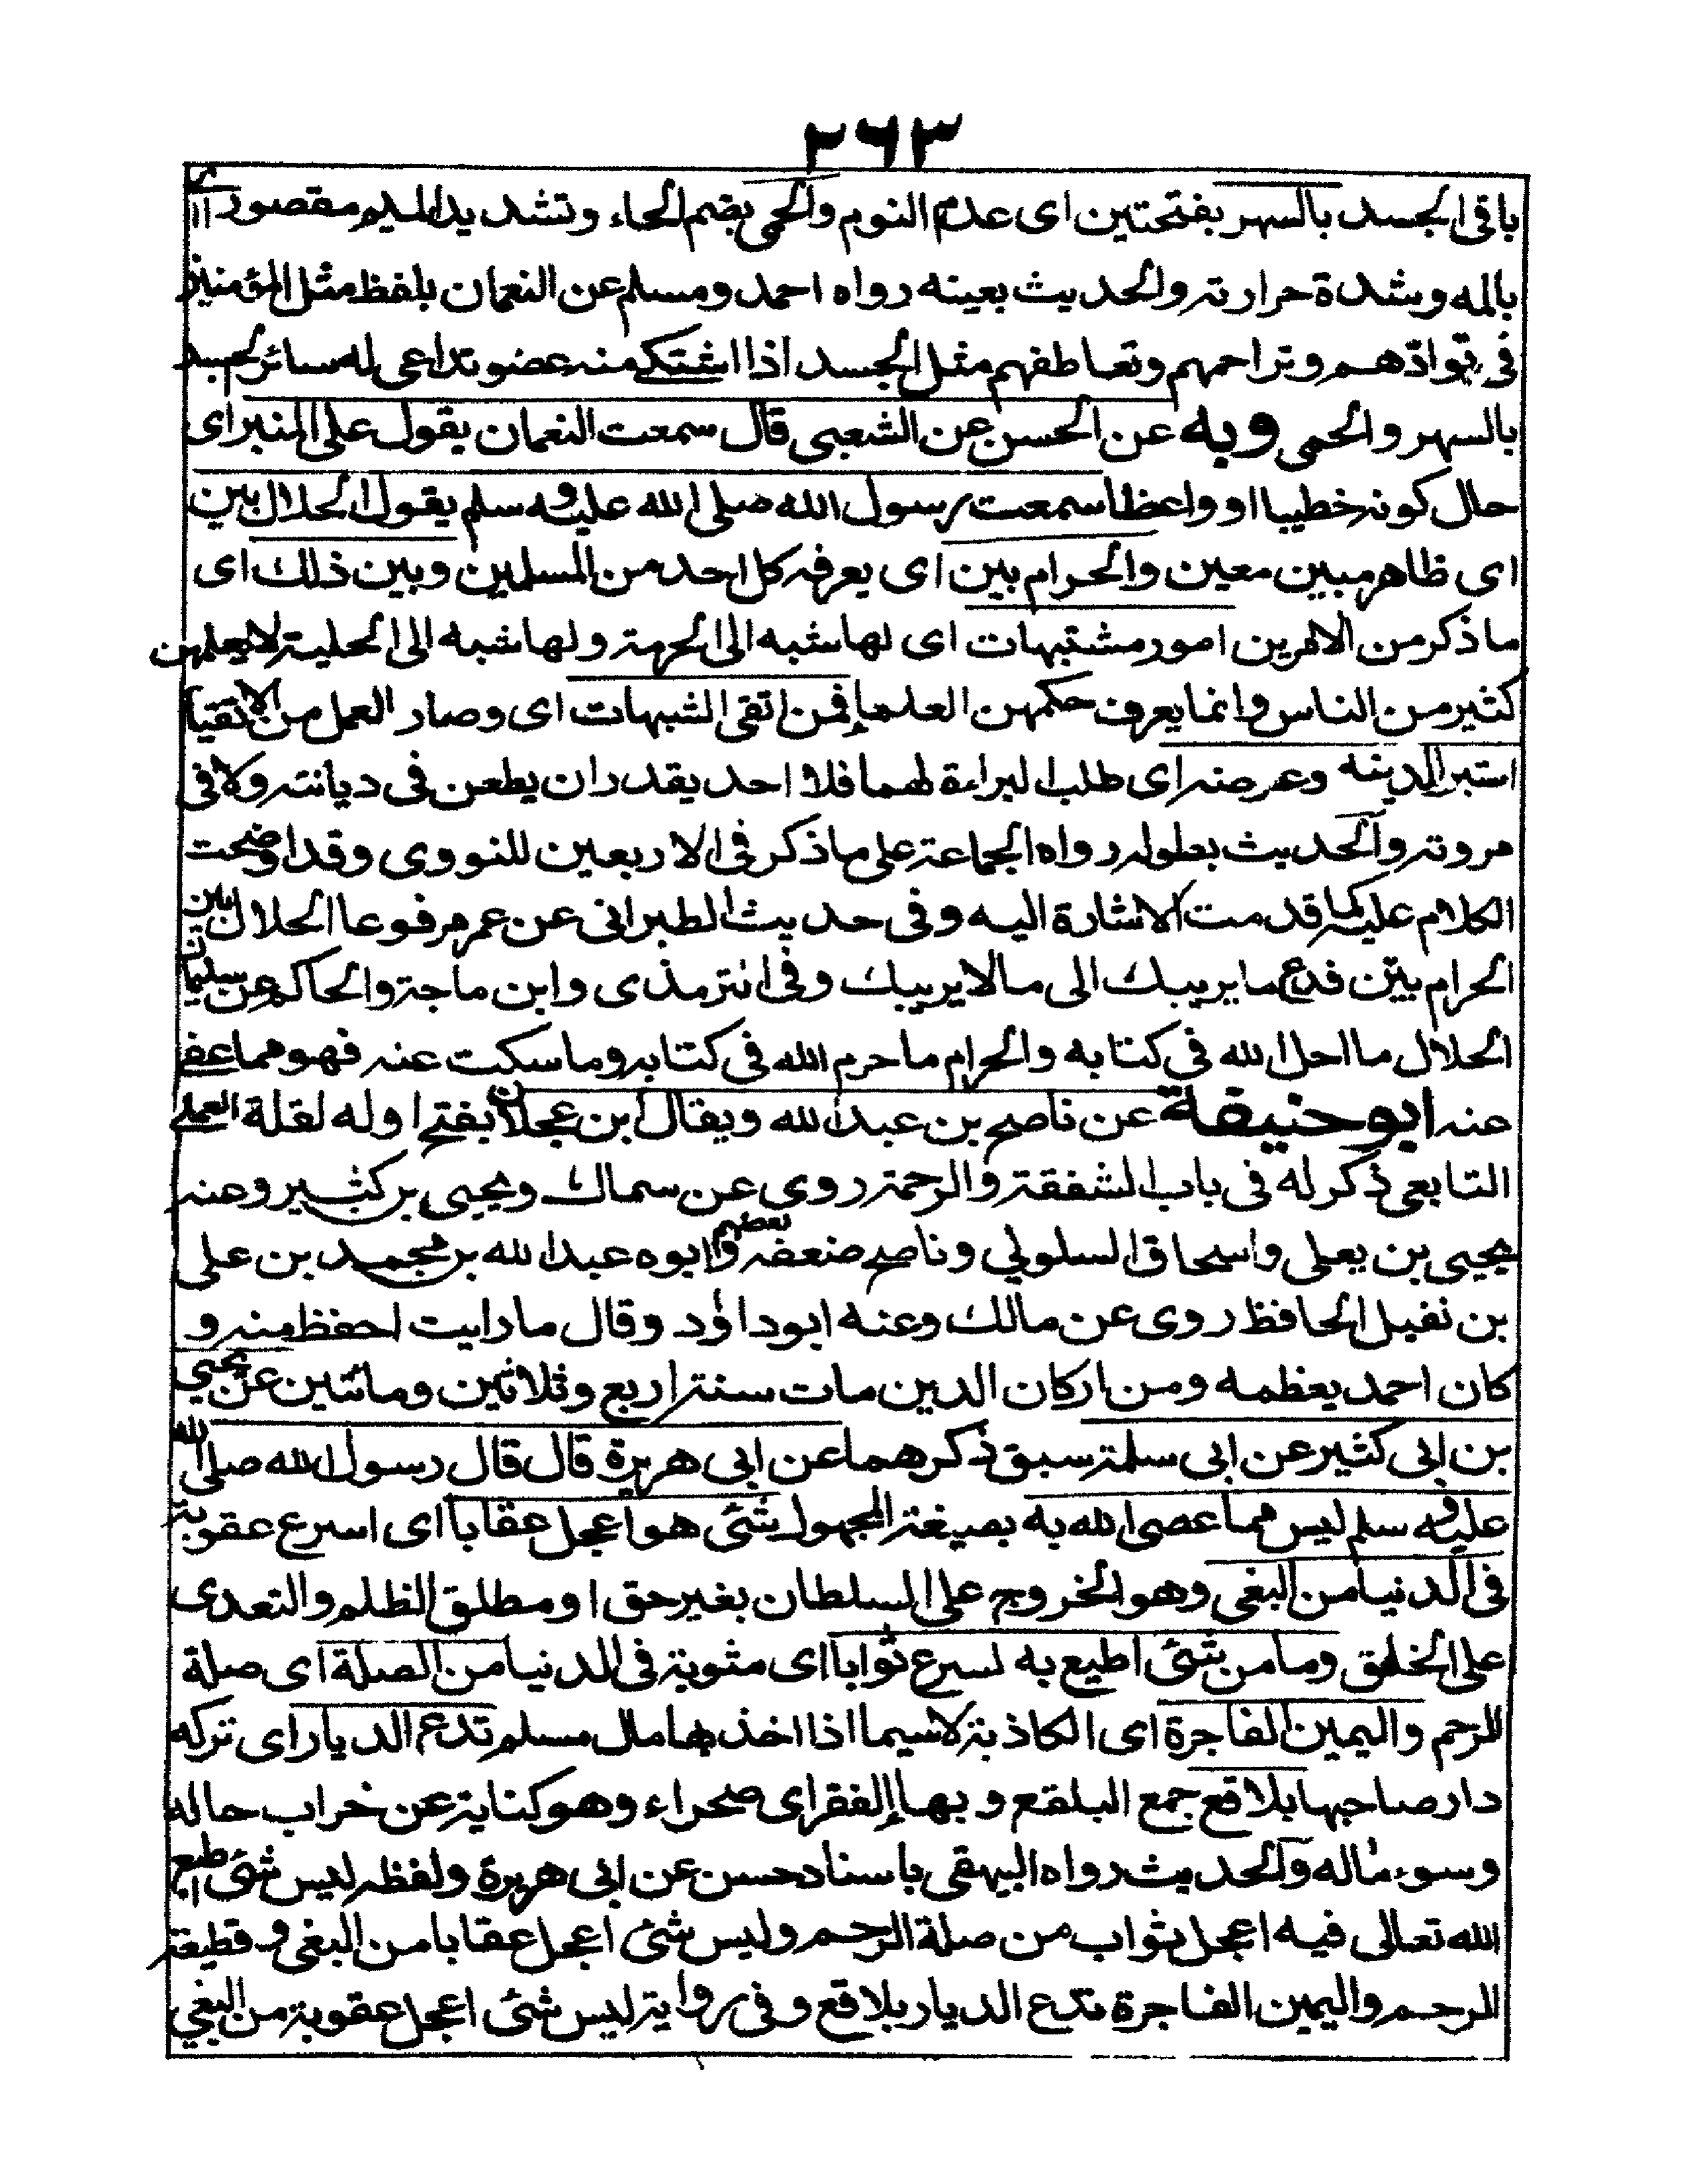 ٢٦٣
باقی الجسد بالسهر بفتحتین ای عدم النوم والحمی بضم الحاء وتشدید المیم مقصورا ای
بالمه وشدة حرارته والحدیث بعینه رواه احمد ومسلم عن النعمان بلفظ مثل المؤمنین
فی توادّهم وتراحمهم وتعاطفهم مثل الجسد اذا اشتکے منه عضو تداعی له سائر الجسد
بالسهر والحمی وبه عن الحسن عن الشعبی قال سمعت النعمان یقول علی المنبر ای
حال کونه خطیبا او واعظا سمعت رسول الله صلی الله علیه وسلم یقول الحلال بین
ای ظاهر مبین معین والحرام بین ای یعرفه کل احد من المسلمین وبین ذلک ای
ما ذکر من الامرین امور مشتبهات ای لها شبه الی الحرمة ولها شبه الی الحلیة لا یعلمهن
کثیر من الناس وانما یعرف حکمهن العلماء فمن اتقی الشبهات ای وصار العمل من الاتقیاء
استبرا لدینه وعرضه ای طلب البراءة لهما فلا احد یقدر ان یطعن فی دیانته ولا فی
مروته والحدیث بطوله رواه الجماعة علی ما ذکر فی الاربعین للنووی وقد اوضحت
الکلام علیه کما قدمت الاشارة الیه وفی حدیث الطبرانی عن عمر مرفوعا الحلال بین
الحرام بیّن فدع ما یریبک الی ما لا یریبک وفی الترمذی وابن ماجة والحاکم عن سلیمان
الحلال ما احل الله فی کتابه والحرام ما حرم الله فی کتابه وما سکت عنه فهو مما عفے
عنه ابو حنیفة عن ناصح بن عبد الله ویقال ابن عجلان بفتح اوله لقلة العملے
التابعی ذکر له فی باب الشفقة والرحمة روی عن سماک ویحیی بن کثیر وعنه
یحیی بن یعلی واسحاق السلولی وناصح ضعفه بعضهم وابوه عبد الله بن محمد بن علی
بن نفیل الحافظ روی عن مالک وعنه ابو داؤد وقال ما رایت احفظ منه و
کان احمد یعظمه ومن ارکان الدین مات سنة اربع وثلاثین ومائتین عن یحیی
بن ابی کثیر عن ابی سلمة سبق ذکرهما عن ابی هریرة قال قال رسول الله صلی الله
علیه وسلم لیس مما عصی الله به بصیغة المجهول شئی هو اعجل عقابا ای اسرع عقوبة
فی الدنیا من البغی وهو الخروج علی السلطان بغیر حق او مطلق الظلم والتعدی
علی الخلق وما من شئی اطیع به لسرع ثوابا ای مثوبة فی الدنیا من الصلة ای صلة
للرحم والیمین الفاجرة ای الکاذبة لا سیما اذا اخذ بها مال مسلم تدع الدیار ای ترکه
دار صاحبها بلاقع جمع البلقع و بهاء الفقر ای صحراء وهو کنایة عن خراب حاله
وسوء ماله والحدیث رواه البیهقی باسناد حسن عن ابی هریرة ولفظه لیس شئی اطیع
الله تعالی فیه اعجل بثواب من صلة الرحم ولیس شئی اعجل عقابا من البغی و قطیعة
الرحم والیمین الفاجرة تدع الدیار بلاقع و فی روایة لیس شئی اعجل عقوبة من البغی